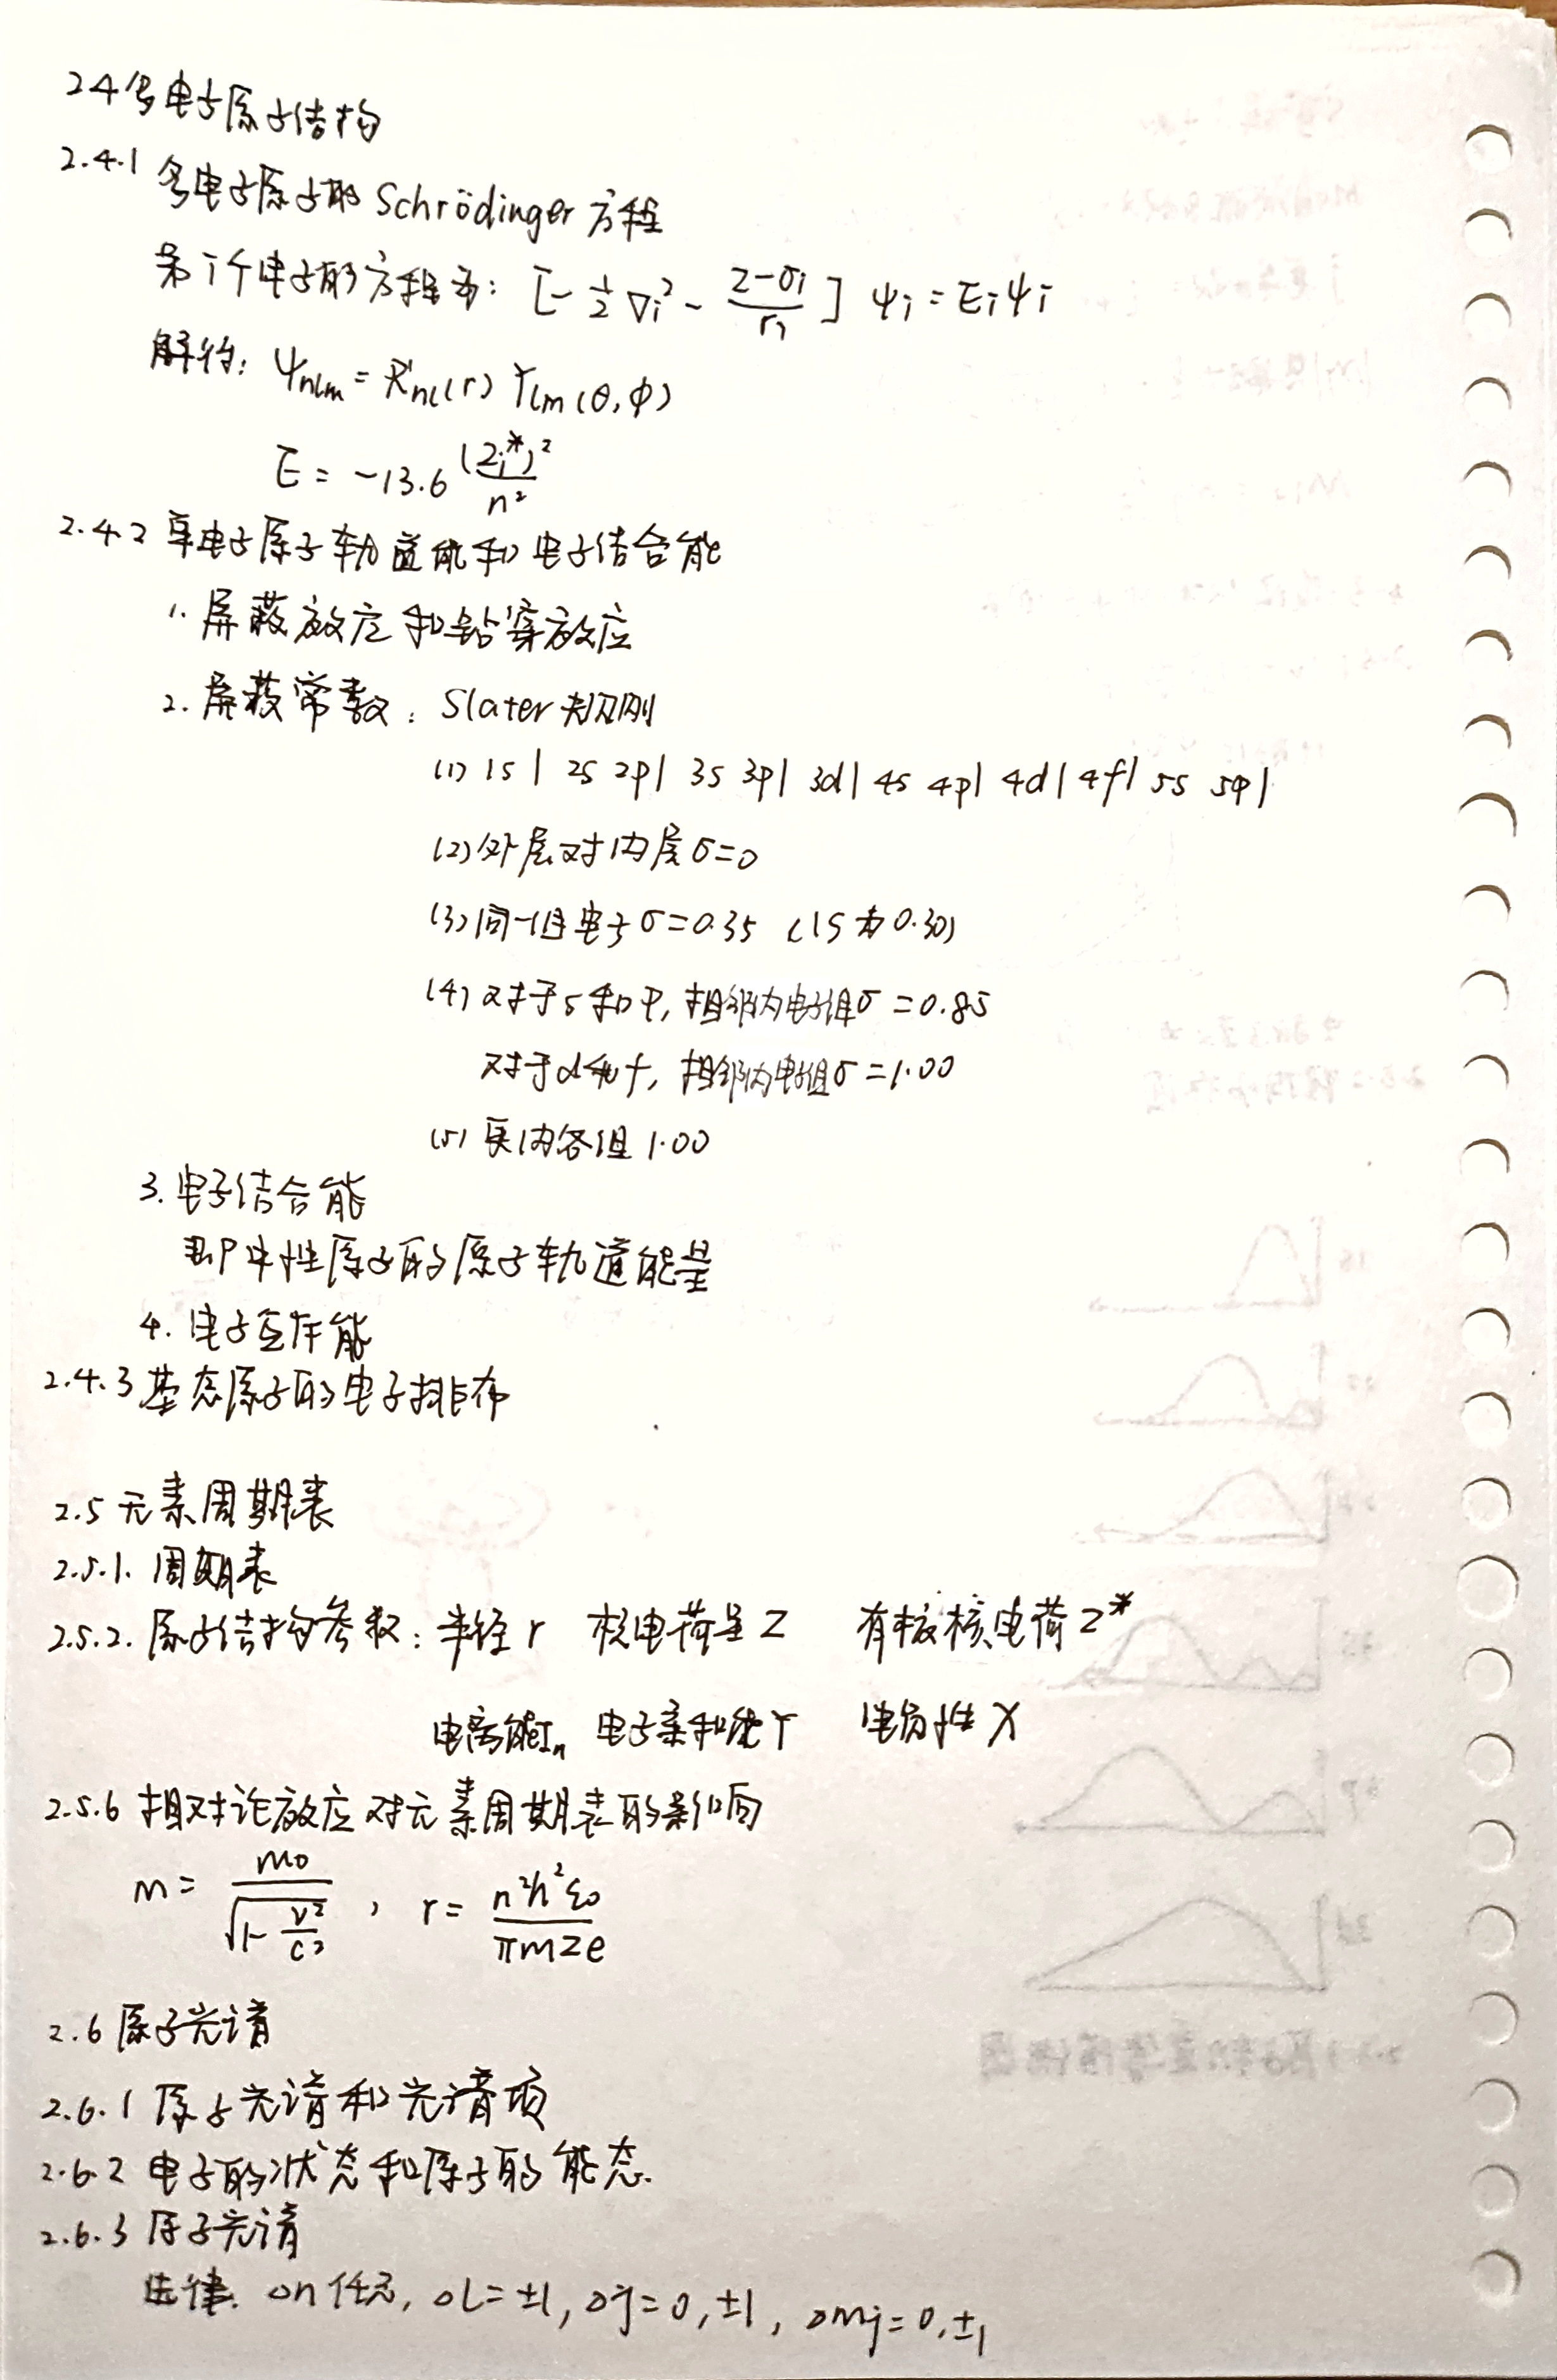 2.4 多电子原子结构
2.4.1 多电子原子的 Schrödinger 方程
第i个电子的方程为: [-1/2 ∇i² - (Z-σi)/ri] ψi = Eiψi
解得: ψnlm = R'nl(r) Ylm(θ,φ)
E = -13.6 (Zi*)²/n²
2.4.2 单电子原子轨道能和电子结合能
1. 屏蔽效应和钻穿效应
2. 屏蔽常数: Slater规则
(1) 1s | 2s 2p | 3s 3p | 3d | 4s 4p | 4d | 4f | 5s 5p |
(2) 外层对内层σ=0
(3) 同一组电子σ=0.35 (1S为0.30)
(4) 对于s和p, 相邻内电子组σ=0.85
对于d和f, 相邻内电子组σ=1.00
(5) 更内各组1.00
3. 电子结合能
即中性原子的原子轨道能量
4. 电子互作能
2.4.3 基态原子的电子排布
2.5 元素周期表
2.5.1. 周期表
2.5.2. 原子结构参数: 半径r 核电荷量Z 有核核电荷Z*
电离能In 电子亲和能Y 电负性χ
2.5.6 相对论效应对元素周期表的影响
m = m0/√(1-v²/c²) , r = n²h²ε0/πmZe
2.6 原子光谱
2.6.1 原子光谱和光谱项
2.6.2 电子的状态和原子的能态.
2.6.3 原子光谱
选律: △n任意, △L=±1, △j=0,±1, △mj=0,±1